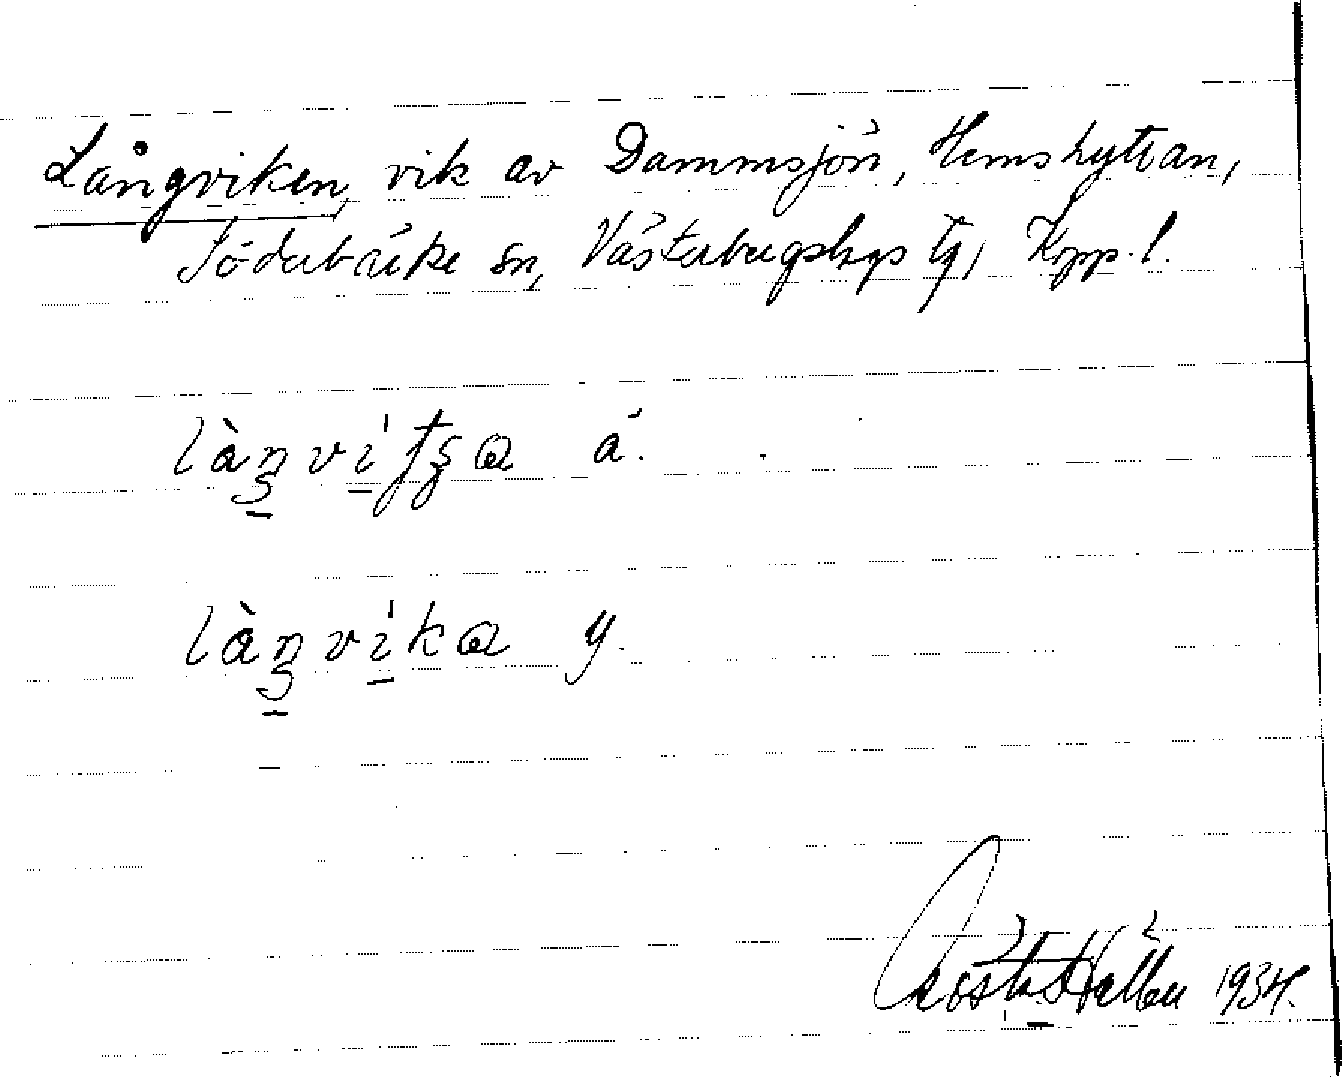 Långviken, vik av Dammsjön, Hemshyttan,
Söderbärke sn, Västerbergslags tg, Kopp. l.
làŋvitʂa ä.
làŋvika y.
Gösta Hallén 1934.